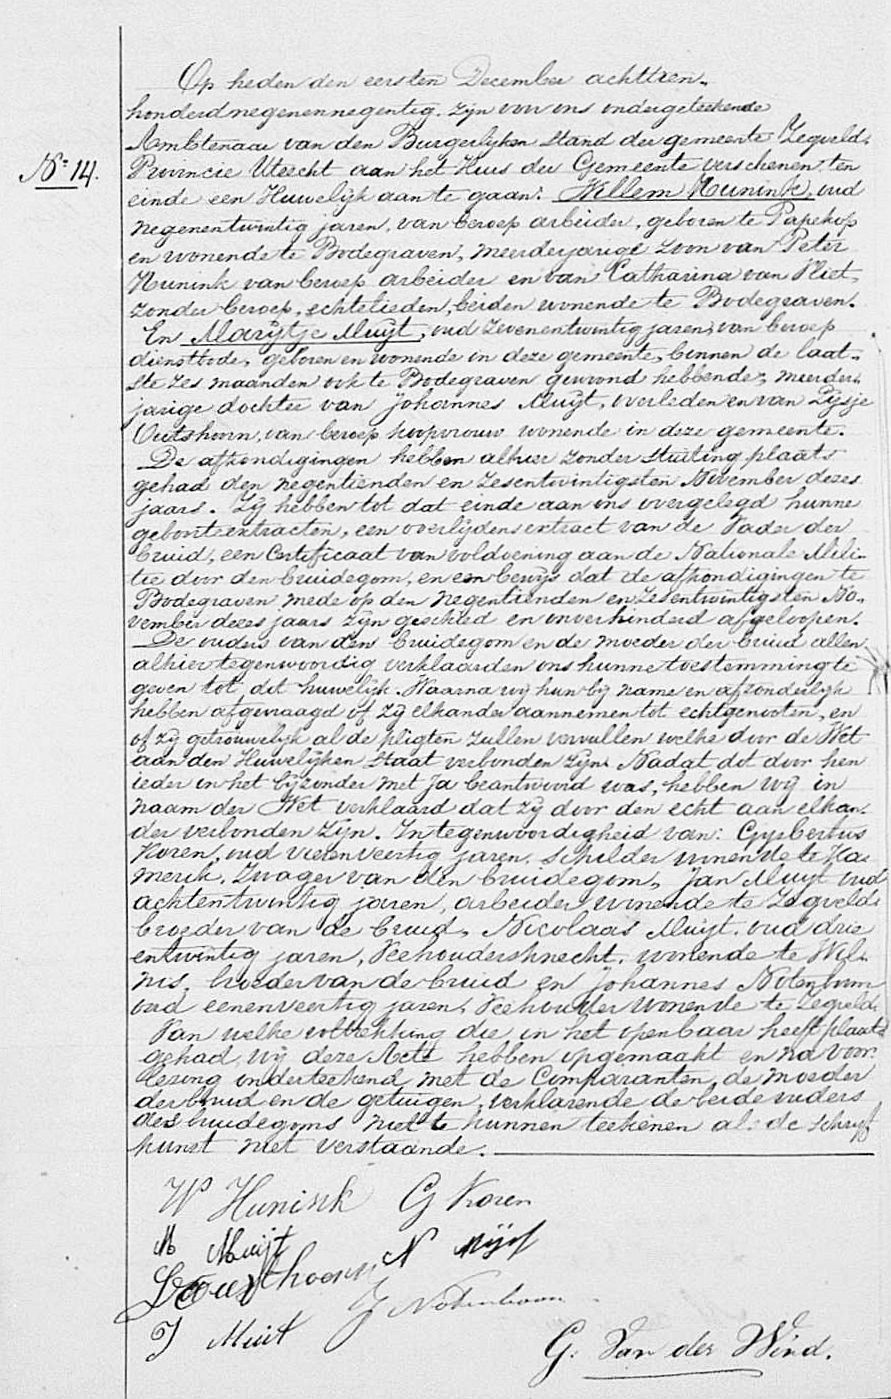 Op heden den eersten December achttien-
honderd negenennegentig. zijn voor ons ondergeteekende
Ambtenaar van den Burgerlijken Stand der gemeente Zegveld,
Nº 14.
Provincie Utrecht aan het Huis der Gemeente verschenen ten
einde een Huwelijk aan te gaan: Willem Hunink, oud
negenentwintig jaren, van beroep arbeider, geboren te Papekop
en wonende te Bodegraven, meerderjarige zoon van Peter
Hunink van beroep arbeider en van Catharina van Vliet,
zonder beroep, echtelieden, beiden wonende te Bodegraven.
En Marijtje Muijt, oud zevenentwintig jaren, van beroep
dienstbode, geboren en wonende in deze gemeente, binnen de laat-
ste zes maanden ook te Bodegraven gewoond hebbende, meerder-
jarige dochter van Johannes Muijt, overleden en van Lijsje
Outshoorn, van beroep koopvrouw wonende in deze gemeente.
De afkondigingen hebben alhier zonder stuiting plaats
gehad den negentienden en zesentwintigsten November dezes
jaars. Zij hebben tot dat einde aan ons overgelegd hunne
geboorteextracten, een overlijdensextract van de Vader der
bruid, een Certificaat van voldoening aan de Nationale Mili-
tie door den bruidegom, en een bewijs dat de afkondigingen te
Bodegraven mede op den negentienden en zesentwintigsten No-
vember dezes jaars zijn geschied en onverhinderd afgeloopen.
De ouders van den bruidegom en de moeder der bruid allen
alhier tegenwoordig verklaarden ons hunne toestemming te
geven tot dit huwelijk. Waarna wij hun bij name en afzonderlijk
hebben afgevraagd of zij elkander aannemen tot echtgenooten, en
of zij getrouwelijk al de pligten zullen vervullen welke door de Wet
aan den Huwelijken staat verbonden zijn. Nadat dit door hen
ieder in het bijzonder met Ja beantwoord was, hebben wij in
naam der Wet verklaard dat zij door den echt aan elkan-
der verbonden zijn. In tegenwoordigheid van: Gijsbertus
Koren, oud vierenveertig jaren, schilder wonende te Ka-
merik, zwager van den bruidegom, Jan Muijt oud
achtentwintig jaren, arbeider wonende te Zegveld,
broeder van de bruid, Nicolaas Muijt, oud drie
entwintig jaren, Veehoudersknecht, wonende te Wil-
nis, broeder van de bruid en Johannes Notenboom
oud eenenveertig jaren, Veehouder wonende te Zegveld.
Van welke voltrekking die in het openbaar heeft plaats
gehad, wij deze Acte hebben opgemaakt en na voor-
lezing onderteekend met de Comparanten, de moeder
der bruid en de getuigen, verklarende de beide ouders
des bruidegoms niet te kunnen teekenen als de schrijf
kunst niet verstaande.
W Hunink G Koren
M Muijt N Mijt
L Outshoorn
J Notenboom
J Muit
G. Van der Wind.